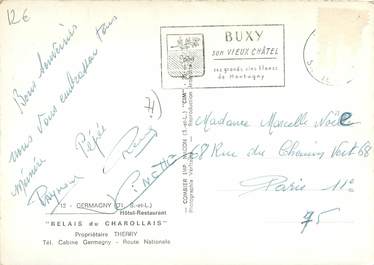 12€
Bons souvenirs
nous vous embrassons tous
Mémée Pépé
Raymond
BUXY
son VIEUX CHÂTEL
ses grands vins blancs
de Montagny
COMBIER IMP. MACON (S.-et-L.) "CIM"
Madame Marcelle Noële
68 Rue du Chemin Vert 68
Paris 11e
75
12 - GERMAGNY (71, S.-et-L.)
Hôtel-Restaurant
"RELAIS du CHAROLLAIS"
Propriétaire THERRY
Tél. Cabine Germagny - Route Nationale